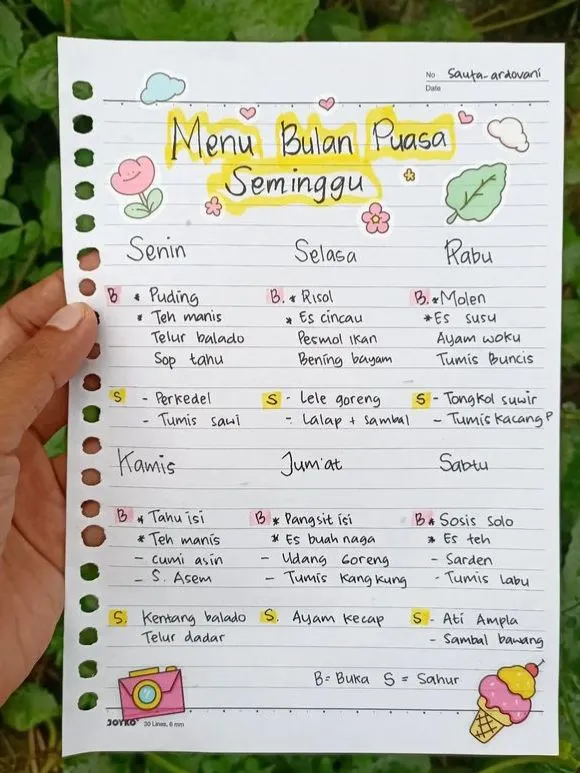 No Sauta-ardovani
Date
Menu Bulan Puasa
Seminggu
Senin Selasa Rabu
B * Puding B. * Risol B. * Molen
* Teh manis * Es cincau * Es susu
Telur balado Pesmol Ikan Ayam woku
Sop tahu Bening bayam Tumis Buncis
S - Perkedel S - Lele goreng S - Tongkol suwir
- Tumis sawi - Lalap + sambal - Tumis kacang P
Kamis Jum'at Sabtu
B * Tahu isi B * Pangsit isi B * Sosis Solo
* Teh manis * Es buah naga * Es teh
- cumi asin - Udang Goreng - Sarden
- S. Asem - Tumis Kangkung - Tumis Labu
S. Kentang balado S. Ayam kecap S - Ati Ampla
Telur dadar - Sambal bawang
B = Buka S = Sahur
JOYKO 30 Lines, 6 mm